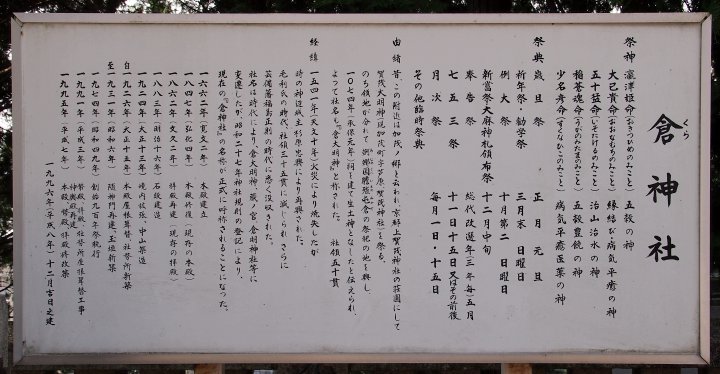 倉神社
くら
祭神 瀛津姫命(おきつひめのみこと) 五穀の神
大己貴命(おおなむちのみこと) 縁結び・病気平癒の神
五十猛命(いそたけるのみこと) 治山治水の神
稲蒼魂命(うがのみたまのみこと) 五穀豊饒の神
少名彦命(すくなひこのみこと) 病気平癒医薬の神
祭典 歳旦祭 正月元旦
祈年祭・勧学祭 三月末日曜日
例大祭 十月第二日曜日
新嘗祭大麻神札頒布祭 十二月中旬
奉告祭 総代改選年(三年毎)五月
七五三祭 十一月十五日又はその前後
月次祭 毎月一日・十五日
その他臨時祭典
由緒 昔、この附近は加茂ノ郷と云われ、京都上賀茂神社の荘園にして
賀茂大明神(現加茂町字芦原賀茂神社)を祭る。
一〇七四年(承保元年)祠を建て生土神となしたと伝えられ、
よって社名を、『倉大明神』と称された。 社領五十貫
経緯 一五四一年(天文十年)火災により焼失したが
時の神辺城主杉原忠興により再興された。
毛利氏の時代、社領三十五貫に減じられ、さらに
芸備藩福島正則の時代に悉く没収された。
社名は時代により、倉大明神、蔵ノ宮、倉明神社等に
変遷したが、昭和二十七年神社規則の登記により、
現在の『倉神社』の名称が正式に呼称されることになった。
一六六二年(寛文二年) 本殿建立
一八四七年(弘化四年) 本殿修復(現存の本殿)
一八六二年(文久二年) 拝殿再建(現存の拝殿)
一八八三年(明治十六年) 石段建造
一九二四年(大正十三年) 境内拡張、中山幕造
自一九二六年(大正十五年) 本殿屋根葺替社督所新築
至一九三一年(昭和六年) 随神門再建、玉垣新築
一九七四年(昭和四九年) 創始九百年祭執行
一九九一年(平成三年)
一九九五年(平成七年) 本殿、幣殿、拝殿修改築
一九九六年(平成八年)十二月吉日之建